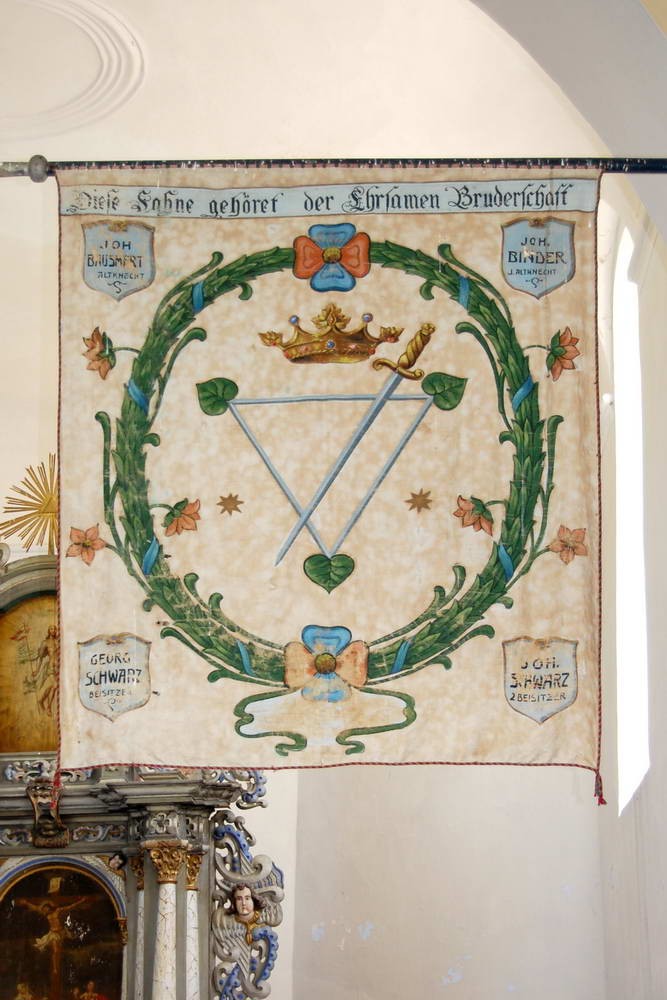 Diese Fahne gehöret der Ehrsamen Bruderschaft
JOH
BAUSMERT
ALTKNECHT
JOH.
BINDER
J. ALTKNECHT
GEORG
SCHWARZ
BEISITZER
JOH.
SCHWARZ
2 BEISITZER